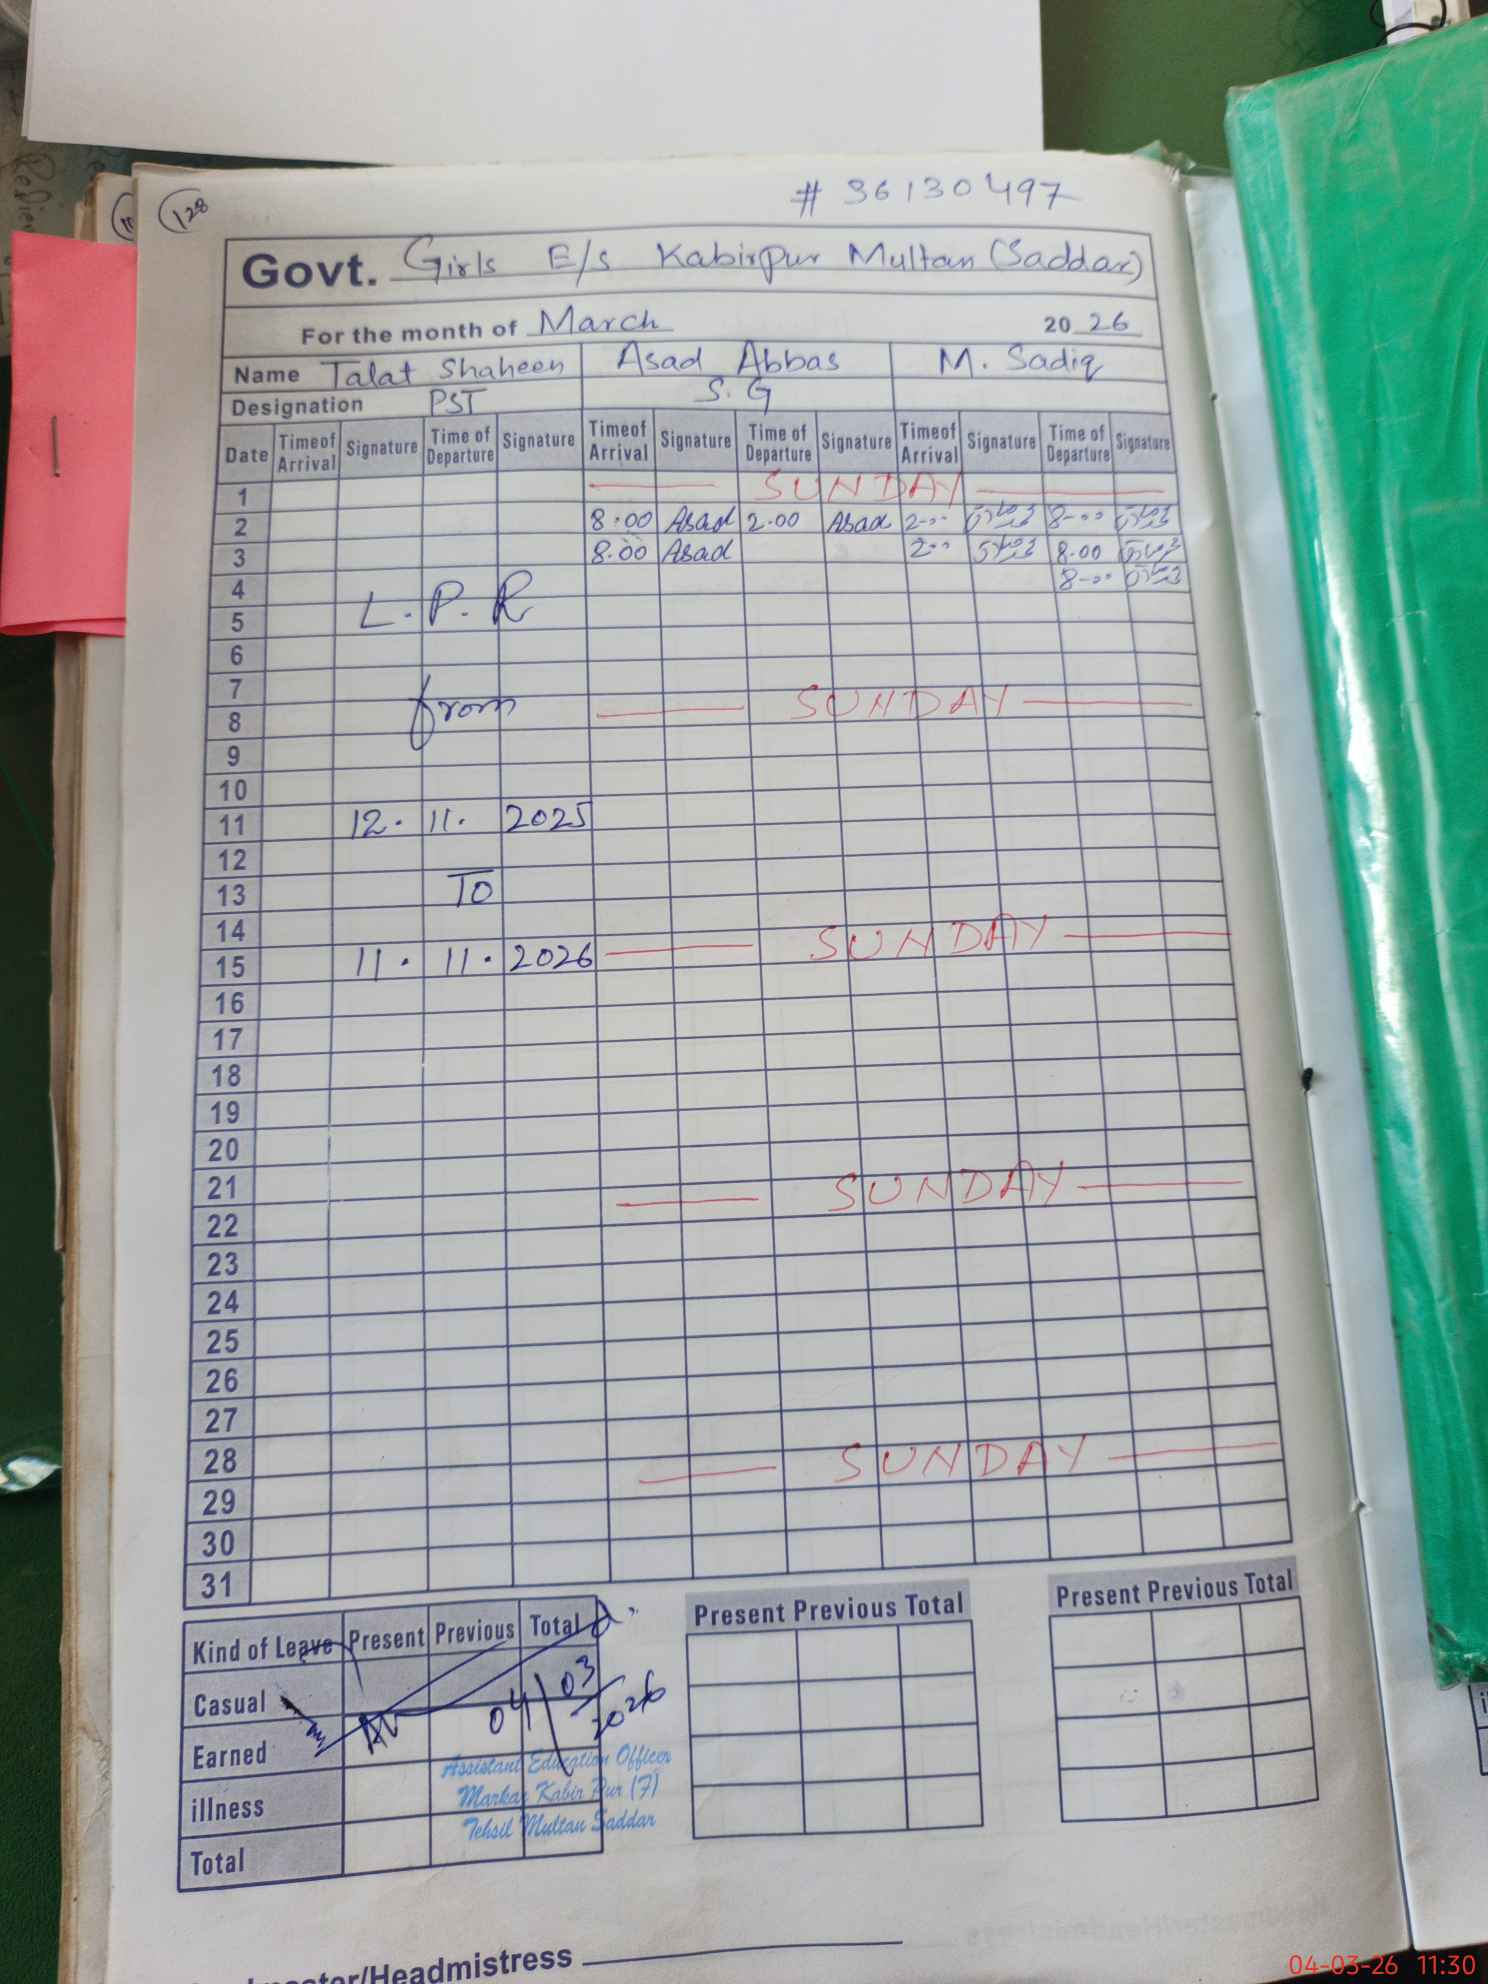 128
# 36130497
Govt. Girls E/s Kabirpur Multan (Saddar)
For the month of March 2026
Name Talat Shaheen Asad Abbas M. Sadiq
Designation PST S. G
Date Timeof Arrival Signature Time of Departure Signature Timeof Arrival Signature Time of Departure Signature Timeof Arrival Signature Time of Departure Signature
1 SUNDAY
2 8.00 Asad 2.00 Asad 2-00 8-00
3 8.00 Asad 2-00 8.00
4 8-00
L.P.R
5
6
7
from SUNDAY
8
9
10
11 12. 11. 2025
12
13 TO
14
15 11. 11. 2026 SUNDAY
16
17
18
19
20
21
SUNDAY
22
23
24
25
26
27
28 SUNDAY
29
30
31
Kind of Leave Present Previous Total Present Previous Total Present Previous Total
Casual
04/03/2026
Earned
illness
Total
Assistant Education Officer
Markaz Kabir Pur (F)
Tehsil Multan Saddar
/Headmistress
04-03-26 11:30